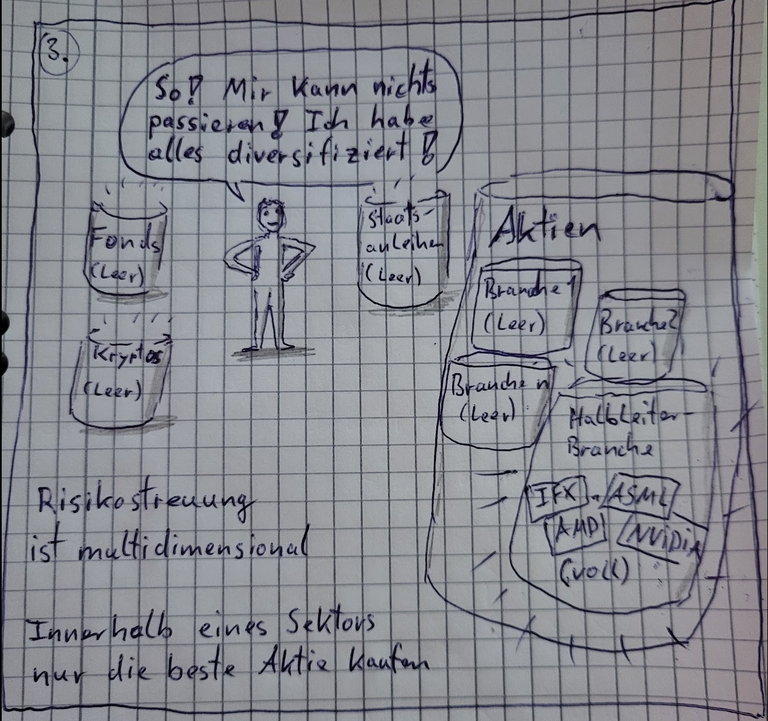 3.
So! Mir kann nichts
passieren! Ich habe
alles diversifiziert!
Fonds
(Leer)
Staats-
anleihen
(Leer)
Kryptos
(Leer)
Aktien
Branche 1
(Leer)
Branche 2
(Leer)
Branche n
(Leer)
Halbleiter-
Branche
IFX ASML
AMD NViDiA
(voll)
Risikostreuung
ist multidimensional
Innerhalb eines Sektors
nur die beste Aktie kaufen